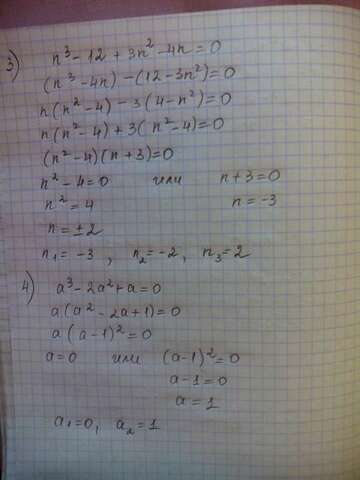 3) n³ - 12 + 3n² - 4n = 0
(n³ - 4n) - (12 - 3n²) = 0
n(n² - 4) - 3(4 - n²) = 0
n(n² - 4) + 3(n² - 4) = 0
(n² - 4)(n + 3) = 0
n² - 4 = 0 или n + 3 = 0
n² = 4 n = -3
n = ±2
n₁ = -3, n₂ = -2, n₃ = 2
4) a³ - 2a² + a = 0
a(a² - 2a + 1) = 0
a(a - 1)² = 0
a = 0 или (a - 1)² = 0
a - 1 = 0
a = 1
a₁ = 0, a₂ = 1